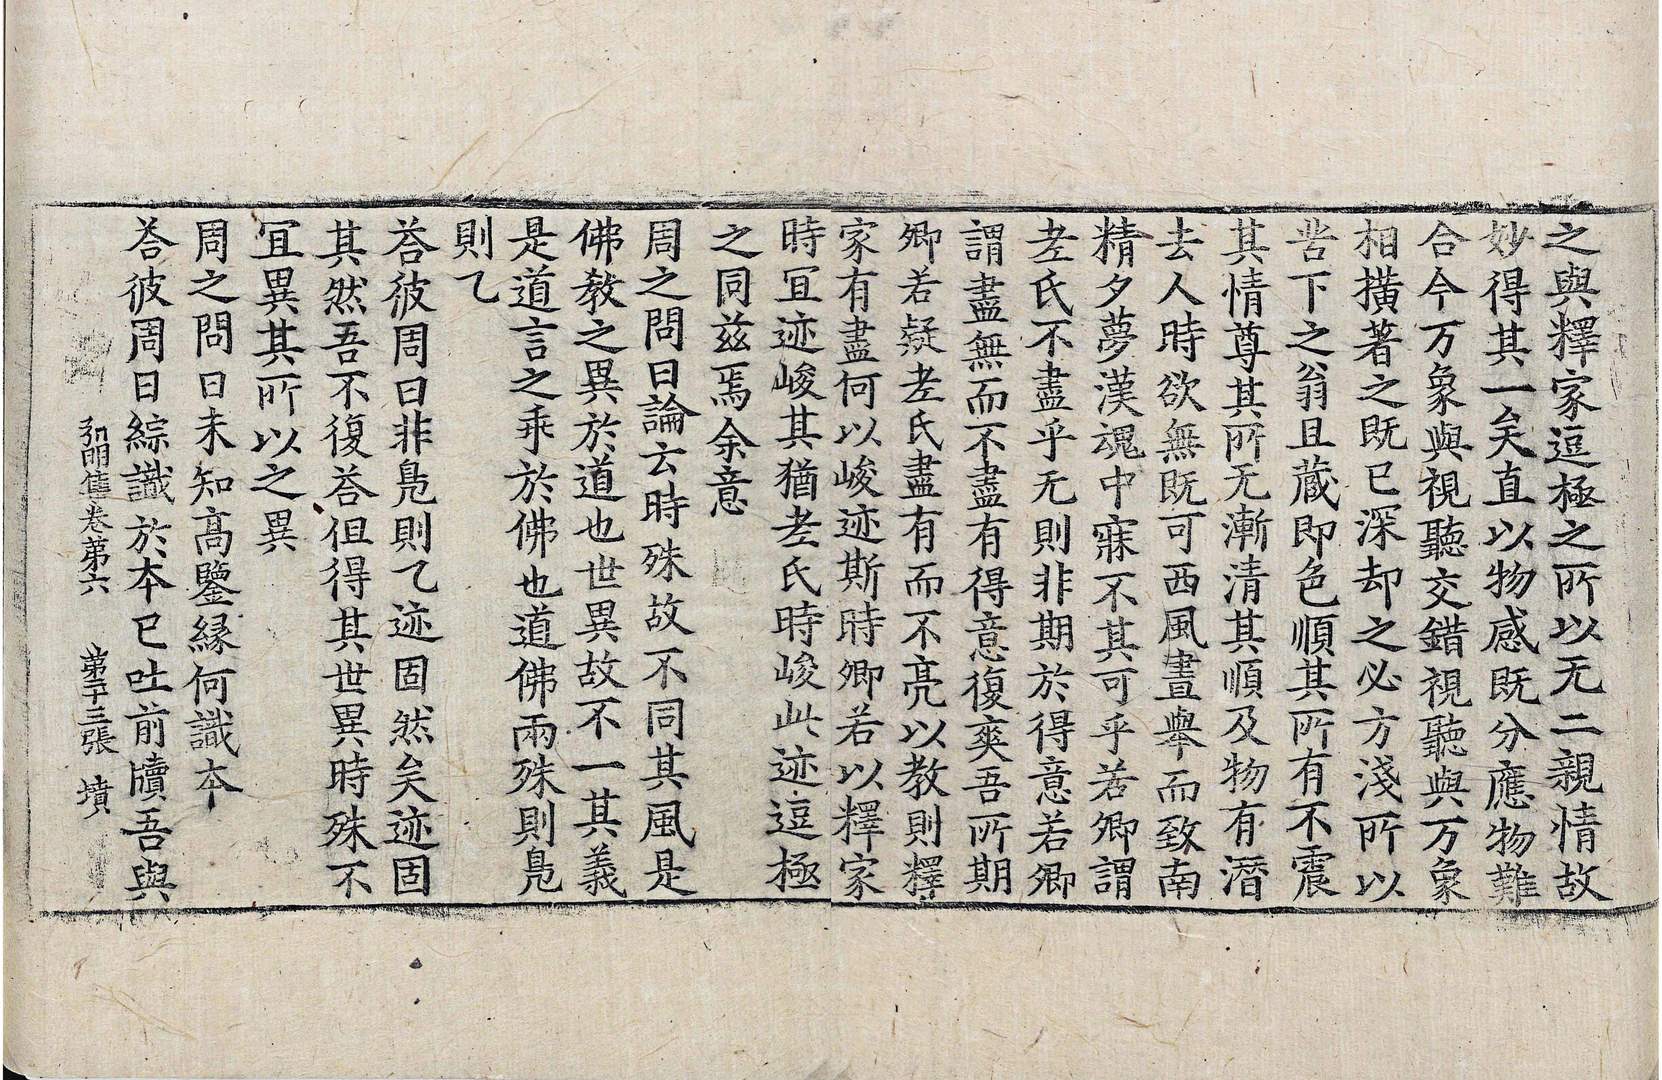 之與釋家逗極之所以无二親情故
妙得其一矣直以物感既分應物難
合今万象與視聽交錯視聽與万象
相撗著之既已深却之必方淺所以
苦下之翁且蔵即色順其所有不震
其情尊其所无漸清其順及物有潛
去人時欲無既可西風晝舉而致南
精夕夢漢魂中寐不其可乎若卿謂
老氏不盡乎无則非期於得意若卿
謂盡無而不盡有得意復爽吾所期
卿若疑老氏盡有而不亮以教則釋
家有盡何以峻迹斯時卿若以釋家
時冝迹峻其猶老氏時峻此迹逗極
之同兹焉余意
周之問曰論云時殊故不同其風是
佛教之異於道也世異故不一其義
是道言之乖於佛也道佛兩殊則鳧
則乙
荅彼周曰非鳧則乙迹固然矣迹固
其然吾不復荅但得其世異時殊不
冝異其所以之異
周之問曰未知高鑒緣何識本
荅彼周曰綜識於本已吐前牘吾與
弘明集卷第六 第二十三張 墳